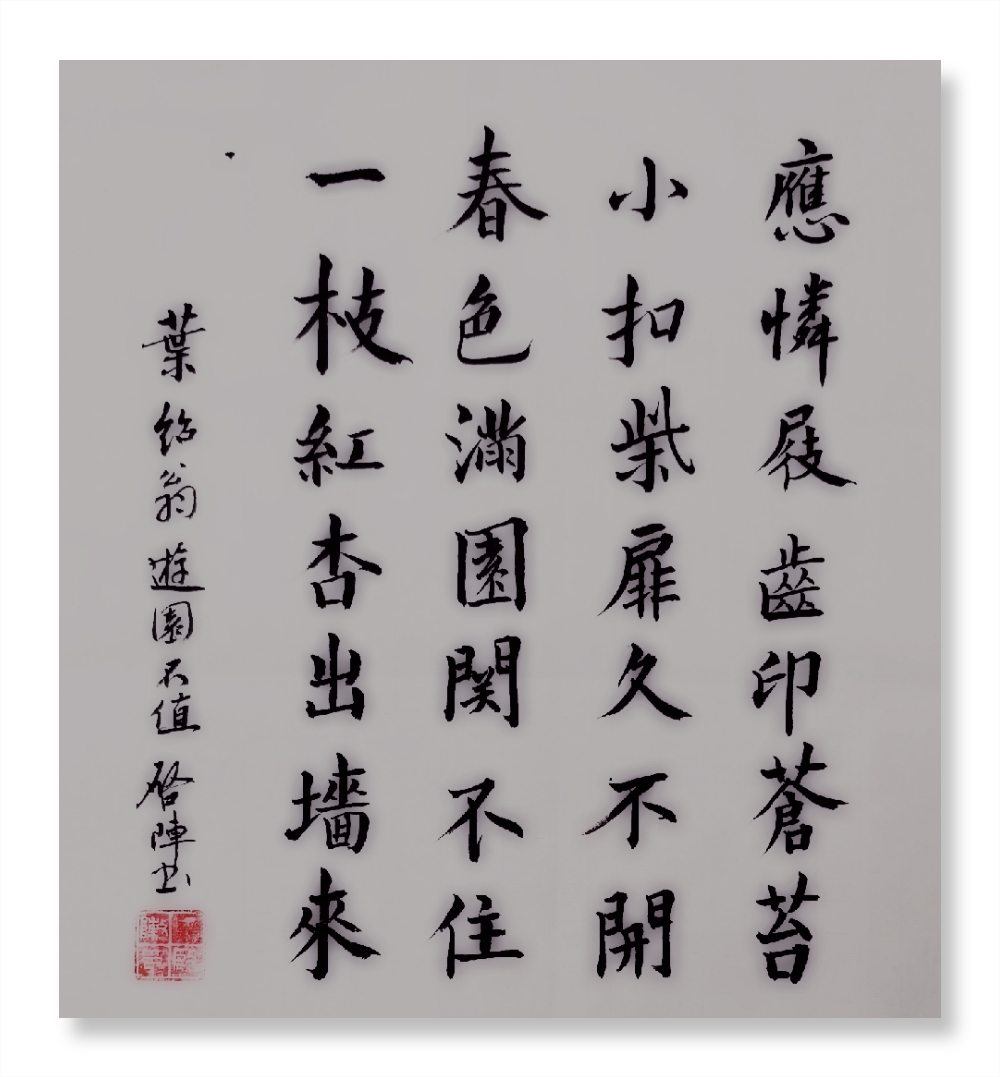 應憐屐齒印蒼苔
小扣柴扉久不開
春色滿園関不住
一枝紅杏出墻來
葉紹翁遊園不值 啓陣书